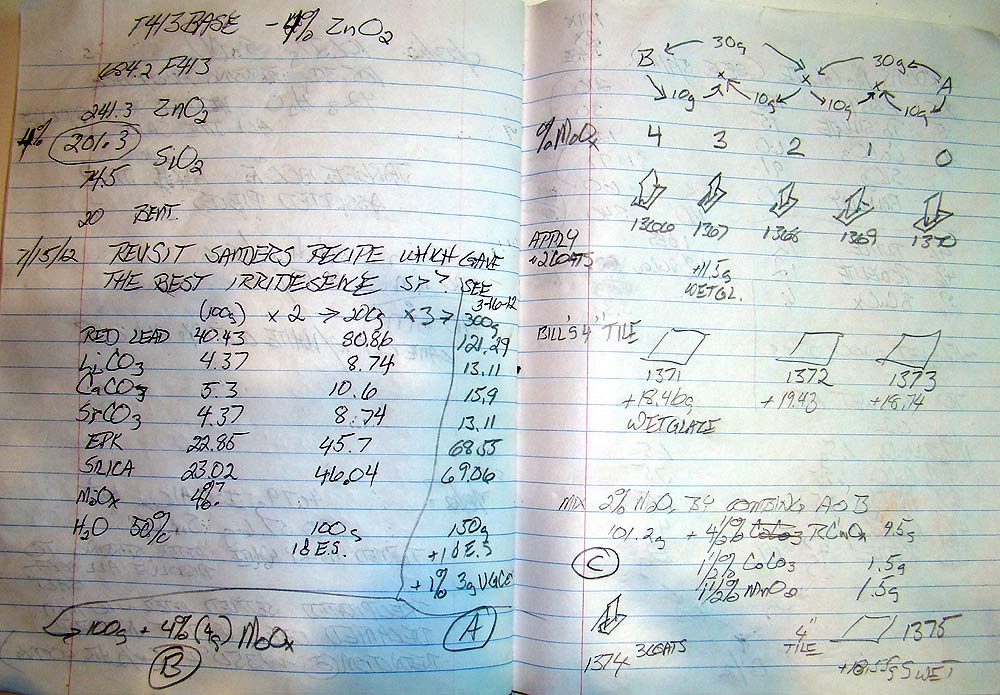 T413 BASE - 4% ZnO2
684.2 F413
241.3 ZnO2
4% 201.3
SiO2
74.5
20 BENT.
7/15/12 REVSIT SANDERS RECIPE WHICH GAVE
THE BEST IRRIDESENCE SEE
3-16-12
(100g) x 2 → 200g x 3 → 300g
RED LEAD 40.43 80.86 121.29
LiCO3 4.37 8.74 13.11
CaCO3 5.3 10.6 15.9
SrCO3 4.37 8.74 13.11
EPK 22.85 45.7 68.55
SILICA 23.02 46.04 69.06
MoOx 4%?
H2O 50% 100g 150g
1 d E.S. + 1 d E.S
+ 1% 3g
→ 100g + 4% (4g) MoOx
B
A
30g
B 30g A
10g 10g 10g 10g
% MoOx 4 3 2 1 0
1366 1367 1368 1369 1370
APPLY
2 COATS
+11.5g
WETGL.
BILL'S 4" TILE
1371 1372 1373
+18.46g +19.43 +18.74
WET GLAZE
MIX 2% MoOx BY COMBING A & B
101.2g + 9.5g
C
CoCO3 1.5g
1 1/2% MnO2 1.5g
1374 3 COATS 4" TILE 1375
WET